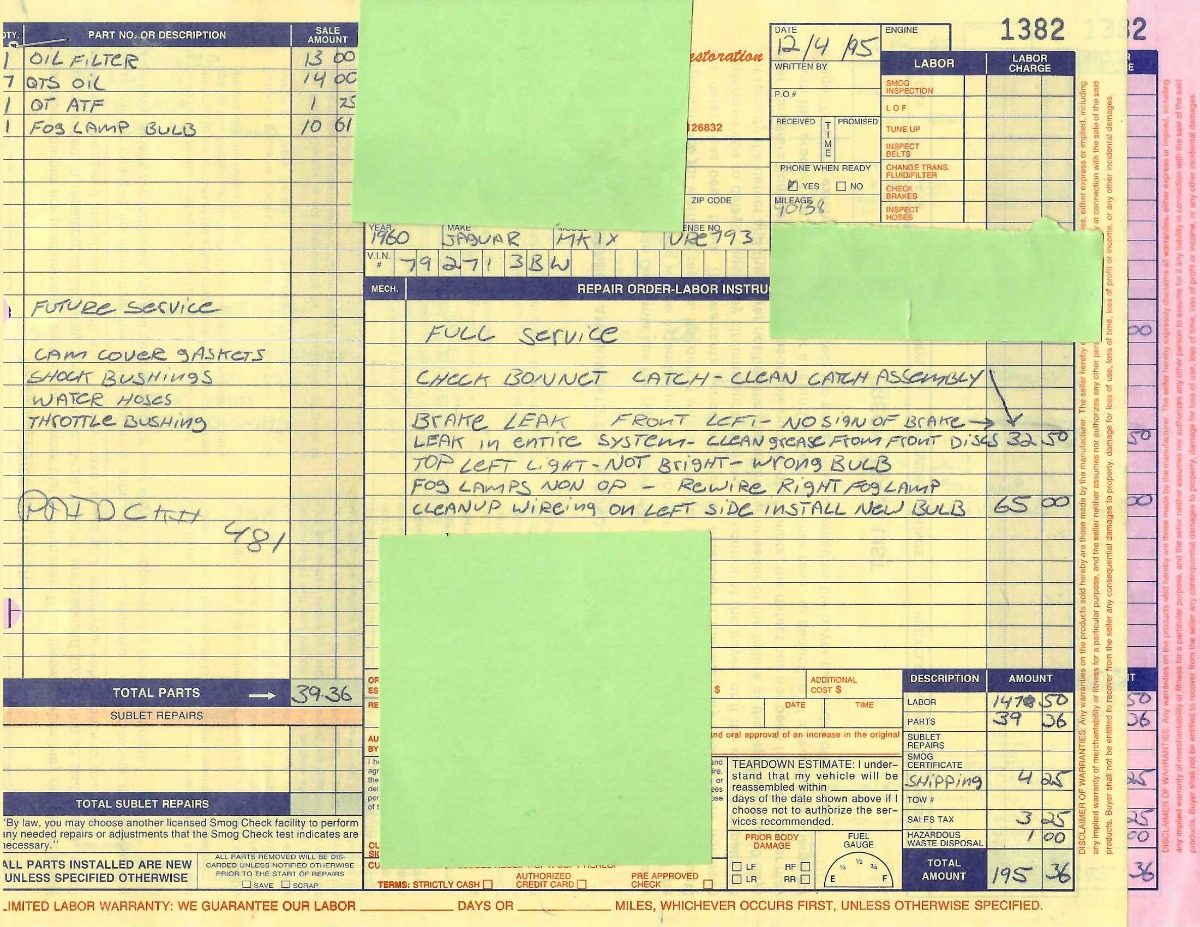 QTY. PART NO. OR DESCRIPTION SALE AMOUNT
1 OIL FILTER 13 00
7 QTS OIL 14 00
1 QT ATF 1 25
1 FOG LAMP BULB 10 61
FUTURE SERVICE
CAM COVER GASKETS
SHOCK BUSHINGS
WATER HOSES
THROTTLE BUSHING
PAID
481
TOTAL PARTS 39.36
SUBLET REPAIRS
TOTAL SUBLET REPAIRS
"By law, you may choose another licensed Smog Check facility to perform
any needed repairs or adjustments that the Smog Check test indicates are
necessary."
ALL PARTS INSTALLED ARE NEW
UNLESS SPECIFIED OTHERWISE
ALL PARTS REMOVED WILL BE DIS-
CARDED UNLESS NOTIFIED OTHERWISE
PRIOR TO THE START OF REPAIRS
SAVE SCRAP
LIMITED LABOR WARRANTY: WE GUARANTEE OUR LABOR DAYS OR MILES, WHICHEVER OCCURS FIRST, UNLESS OTHERWISE SPECIFIED.
estoration
126832
ZIP CODE
DATE 12/4/95
WRITTEN BY
P.O.#
RECEIVED TIME PROMISED
PHONE WHEN READY
YES NO
MILEAGE
ENGINE
1382
LABOR LABOR CHARGE
SMOG INSPECTION
L O F
TUNE UP
INSPECT BELTS
CHANGE TRANS. FLUID/FILTER
CHECK BRAKES
INSPECT HOSES
YEAR MAKE
1960 JAGUAR MK IX URE793
V.I.N. # 79 271 3BW
MECH. REPAIR ORDER-LABOR INSTRU
FULL SERVICE
CHECK BONNET CATCH - CLEAN CATCH ASSEMBLY
BRAKE LEAK FRONT LEFT - NO SIGN OF BRAKE →
LEAK IN ENTIRE SYSTEM - CLEAN GREASE FROM FRONT DISCS 32 50
TOP LEFT LIGHT - NOT BRIGHT - WRONG BULB
FOG LAMPS NON OP - REWIRE RIGHT FOG LAMP
CLEANUP WIREING ON LEFT SIDE INSTALL NEW BULB 65 00
$ ADDITIONAL COST $
DATE TIME
and oral approval of an increase in the original
TEARDOWN ESTIMATE: I under-
stand that my vehicle will be
reassembled within
days of the date shown above if I
choose not to authorize the ser-
vices recommended.
PRIOR BODY DAMAGE
LF RF
LR RR
FUEL GAUGE
E ¼ ½ ¾ F
TERMS: STRICTLY CASH AUTHORIZED CREDIT CARD PRE APPROVED CHECK
DESCRIPTION AMOUNT
LABOR 147 50
PARTS 39 36
SUBLET REPAIRS
SMOG CERTIFICATE
SHIPPING 4 25
TOW #
SALES TAX 3 25
HAZARDOUS WASTE DISPOSAL 1 00
TOTAL AMOUNT 195 36
DISCLAIMER OF WARRANTIES: Any warranties on the products sold hereby are those made by the manufacturer. The seller hereby
any implied warranty of merchantability or fitness for a particular purpose, and the seller neither assumes nor authorizes any other
products. Buyer shall not be entitled to recover from the seller any consequential damages, damages to property, damage for loss of use, loss of time, loss of profit or income, or any other incidental damages.